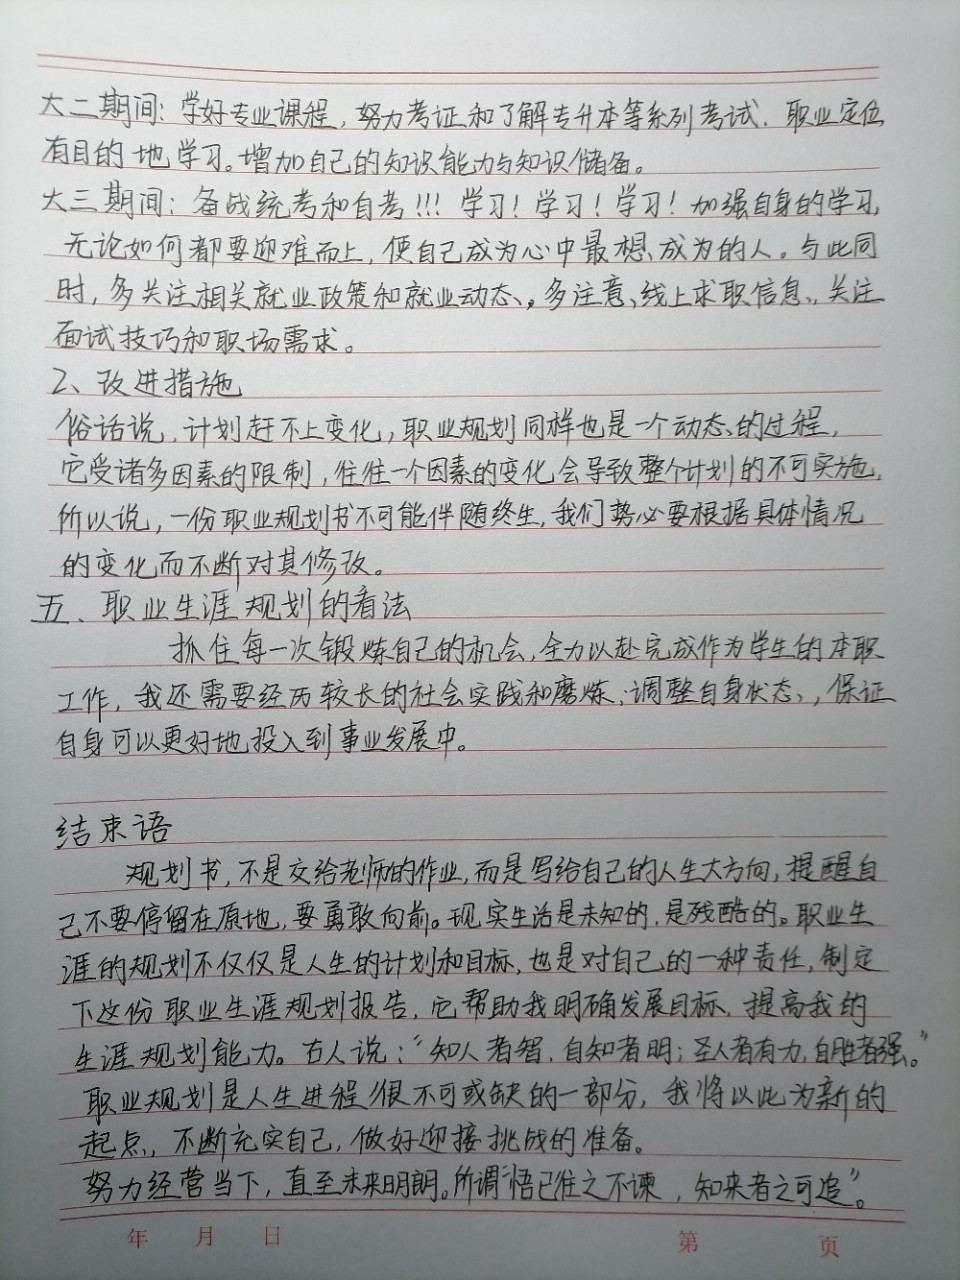 大二期间：学好专业课程，努力考证和了解专升本等系列考试．职业定位
有目的地学习。增加自己的知识能力与知识储备。
大三期间：备战统考和自考！！！学习！学习！学习！加强自身的学习，
无论如何都要迎难而上，使自己成为心中最想成为的人。与此同
时，多关注相关就业政策和就业动态，多注意线上求职信息、关注
面试技巧和职场需求。
2、改进措施
俗话说，计划赶不上变化，职业规划同样也是一个动态的过程，
它受诸多因素的限制，往往一个因素的变化会导致整个计划的不可实施，
所以说，一份职业规划书不可能伴随终生，我们势必要根据具体情况
的变化而不断对其修改。
五、职业生涯规划的看法
抓住每一次锻炼自己的机会，全力以赴完成作为学生的本职
工作，我还需要经历较长的社会实践和磨炼，调整自身状态，保证
自身可以更好地投入到事业发展中。
结束语
规划书，不是交给老师的作业，而是写给自己的人生大方向，提醒自
己不要停留在原地，要勇敢向前。现实生活是未知的，是残酷的。职业生
涯的规划不仅仅是人生的计划和目标，也是对自己的一种责任，制定
下这份职业生涯规划报告，它帮助我明确发展目标，提高我的
生涯规划能力。古人说：“知人者智，自知者明；圣人者有力，自胜者强。”
职业规划是人生进程很不可或缺的一部分，我将以此为新的
起点，不断充实自己，做好迎接挑战的准备。
努力经营当下，直至未来明朗。所谓“悟已往之不谏，知来者之可追”。
年 月 日 第 页